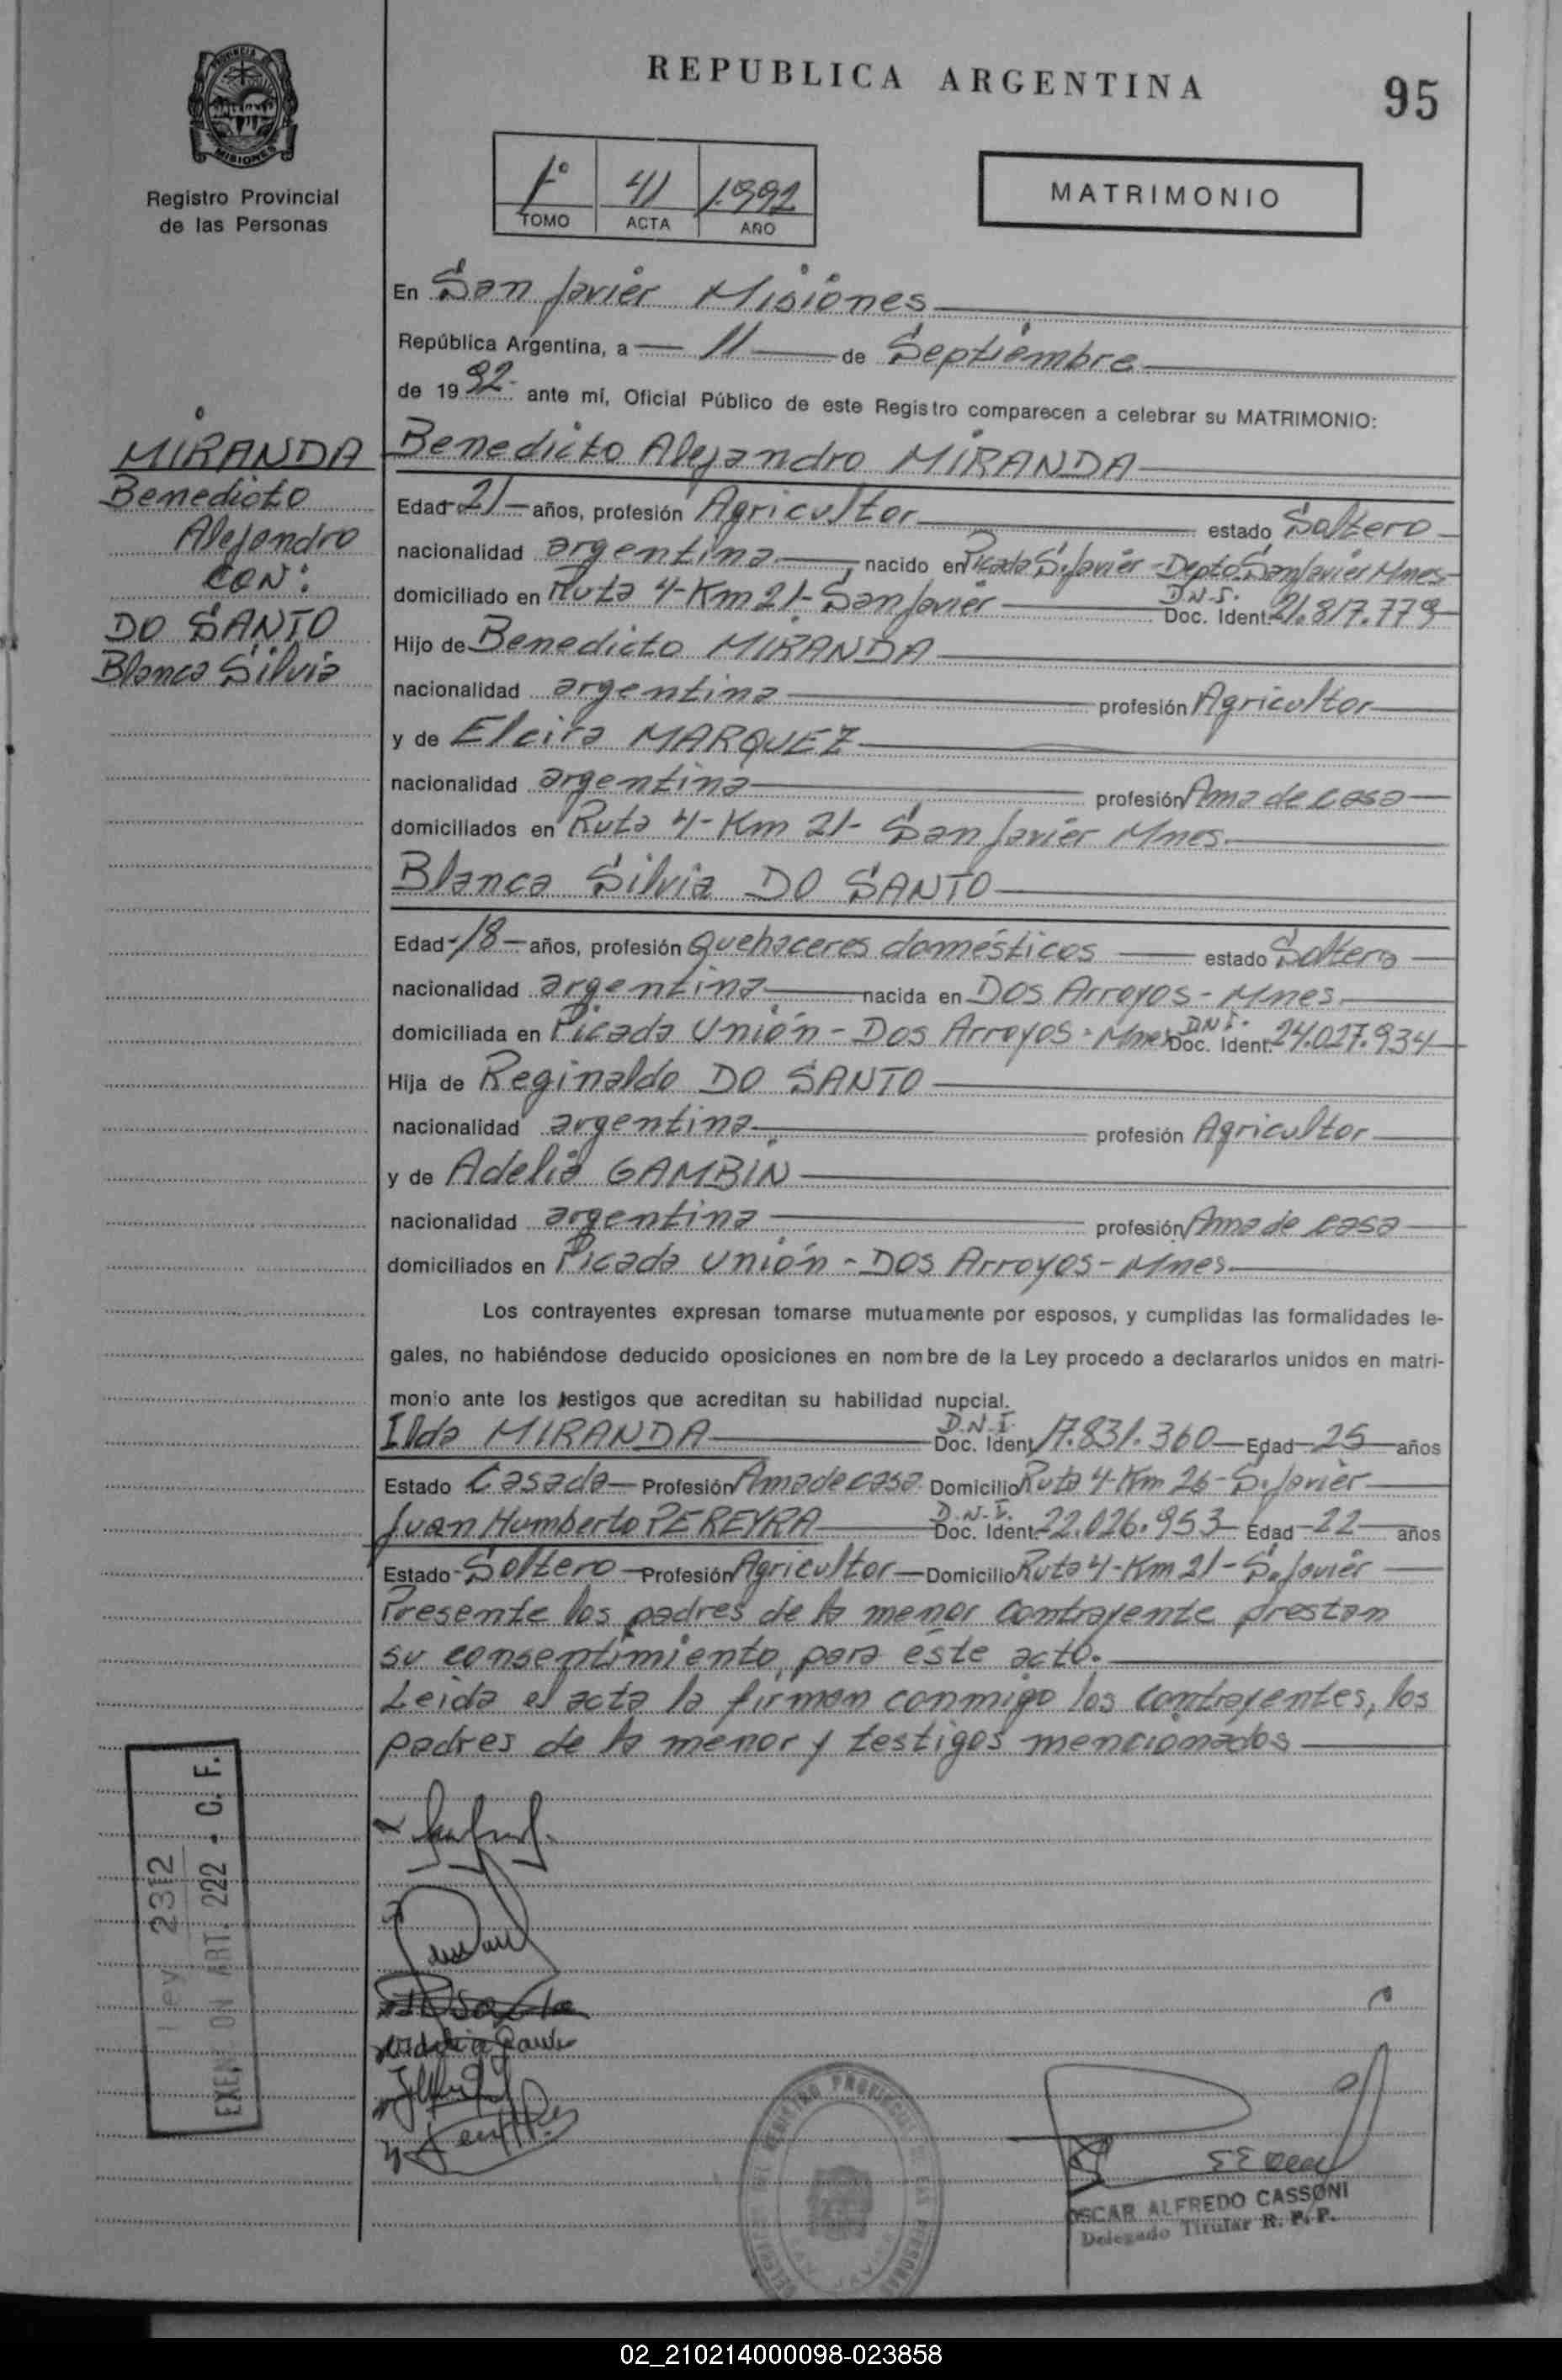 REPUBLICA ARGENTINA
95
PROVINCIA DE
MISIONES
Registro Provincial
de las Personas
1º 41 1992
TOMO ACTA AÑO
MATRIMONIO
En San Javier Misiones
República Argentina, a 11 de Septiembre
de 1992 ante mí, Oficial Público de este Registro comparecen a celebrar su MATRIMONIO:
MIRANDA
Benedicto
Alejandro
CON:
DO SANTO
Blanca Silvia
Benedicto Alejandro MIRANDA
Edad 21 años, profesión Agricultor estado Soltero
nacionalidad argentina nacido en Picada S. Javier - Depto. San Javier Mnes
domiciliado en Ruta 4 - Km 21 - San Javier D.N.I. Doc. Ident. 21.817.779
Hijo de Benedicto MIRANDA
nacionalidad argentina profesión Agricultor
y de Elcira MARQUEZ
nacionalidad argentina profesión Ama de casa
domiciliados en Ruta 4 - Km 21 - San Javier Mnes.
Blanca Silvia DO SANTO
Edad 18 años, profesión Quehaceres domésticos estado Soltera
nacionalidad argentina nacida en Dos Arroyos - Mnes.
domiciliada en Picada Unión - Dos Arroyos - Mnes D.N.I. Doc. Ident. 24.027.934
Hija de Reginaldo DO SANTO
nacionalidad argentina profesión Agricultor
y de Adelia GAMBIN
nacionalidad argentina profesión Ama de casa
domiciliados en Picada Unión - Dos Arroyos - Mnes.
Los contrayentes expresan tomarse mutuamente por esposos, y cumplidas las formalidades le-
gales, no habiéndose deducido oposiciones en nombre de la Ley procedo a declararlos unidos en matri-
monio ante los testigos que acreditan su habilidad nupcial.
Ilda MIRANDA D.N.I. Doc. Ident. 17.831.360 Edad 25 años
Estado Casada Profesión Ama de casa Domicilio Ruta 4 - Km 26 - S. Javier
Juan Humberto PEREYRA D.N.I. Doc. Ident. 22.026.953 Edad 22 años
Estado Soltero Profesión Agricultor Domicilio Ruta 4 - Km 21 - S. Javier
Presente los padres de la menor contrayente prestan
su consentimiento para éste acto.
Leida el acta la firman conmigo los contrayentes, los
padres de la menor y testigos mencionados
Ley 2312
ART. 222 - C. F.
OSCAR ALFREDO CASSONI
Delegado Titular R. P. P.
02_210214000098-023858